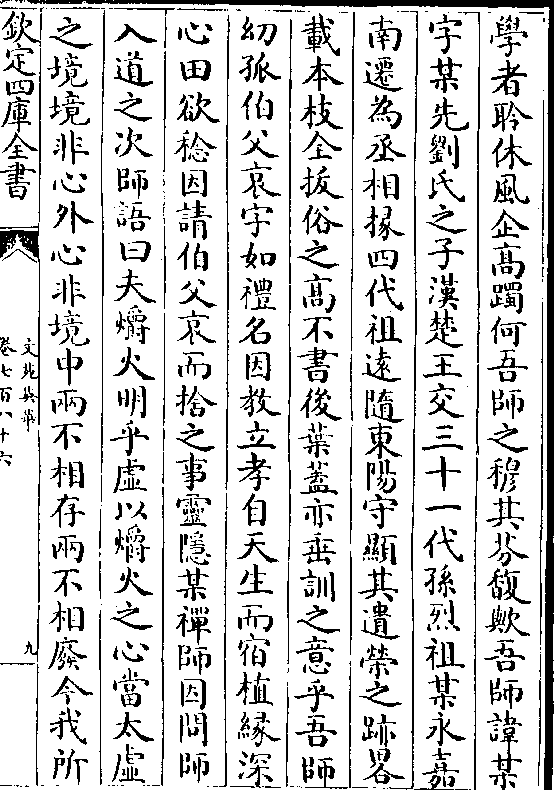 學者聆休風企髙躅何吾師之穆其芬馥歟吾師諱某
字某先劉氏之子漢楚王交三十一代孫烈祖某永嘉
南遷為丞相掾四代祖遠隨東陽守顯其遺榮之跡畧
載本枝全拔俗之髙不書後葉葢亦垂訓之意乎吾師
幼孤伯父哀字如禮名因教立孝自天生而宿植緣深
心田欲稔因請伯父哀而捨之事靈隱某禪師因問師
入道之次師語曰夫爝火明乎虛以爝火之心當太虛
之境境非心外心非境中兩不相存兩不相廢今我所
欽定四庫全書
文苑英華
卷七百八十六
九